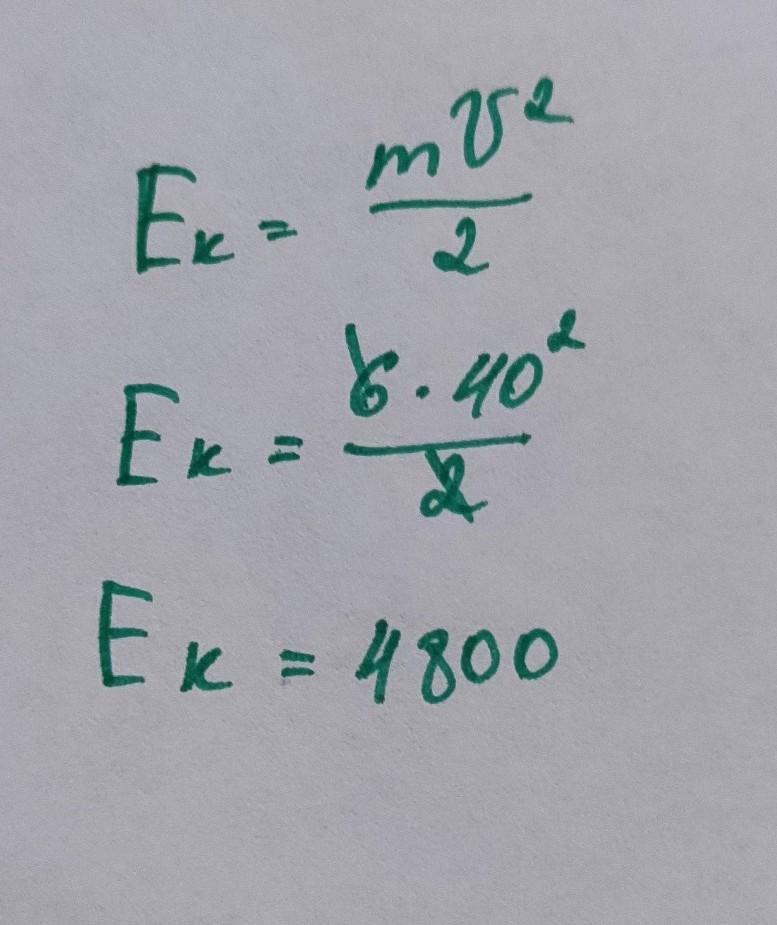 Eₖ = mv²/2
Eₖ = 6·40²/2
Eₖ = 4800